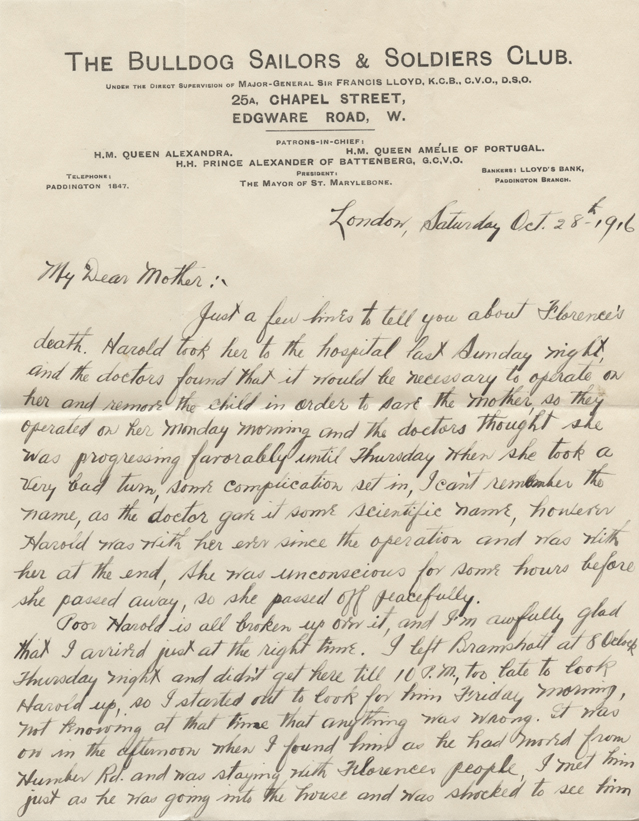 THE BULLDOG SAILORS & SOLDIERS CLUB.
UNDER THE DIRECT SUPERVISION OF MAJOR-GENERAL SIR FRANCIS LLOYD, K.C.B., C.V.O., D.S.O.
25A, CHAPEL STREET,
EDGWARE ROAD, W.
PATRONS-IN-CHIEF:
H.M. QUEEN ALEXANDRA. H.M. QUEEN AMÉLIE OF PORTUGAL.
H.H. PRINCE ALEXANDER OF BATTENBERG, G.C.V.O.
TELEPHONE: PRESIDENT: BANKERS: LLOYD'S BANK,
PADDINGTON 1847. THE MAYOR OF ST. MARYLEBONE. PADDINGTON BRANCH.
London, Saturday Oct. 28th, 1916
My Dear Mother:-
Just a few lines to tell you about Florence's
death. Harold took her to the hospital last Sunday night,
and the doctors found that it would be necessary to operate on
her and remove the child in order to save the mother, so they
operated on her Monday morning and the doctors thought she
was progressing favorably until Thursday when she took a
very bad turn, some complication set in, I can't remember the
name, as the doctor gave it some scientific name, however
Harold was with her ever since the operation and was with
her at the end, she was unconscious for some hours before
she passed away, so she passed off peacefully.
Poor Harold is all broken up over it, and I'm awfully glad
that I arrived just at the right time. I left Bramshott at 8 Oclock
Thursday night and didn't get here till 10 P.M., too late to look
Harold up, so I started out to look for him Friday morning,
not knowing at that time that anything was wrong. It was
on in the afternoon when I found him as he had moved from
Humber Rd. and was staying with Florences people, I met him
just as he was going into the house and was shocked to see him